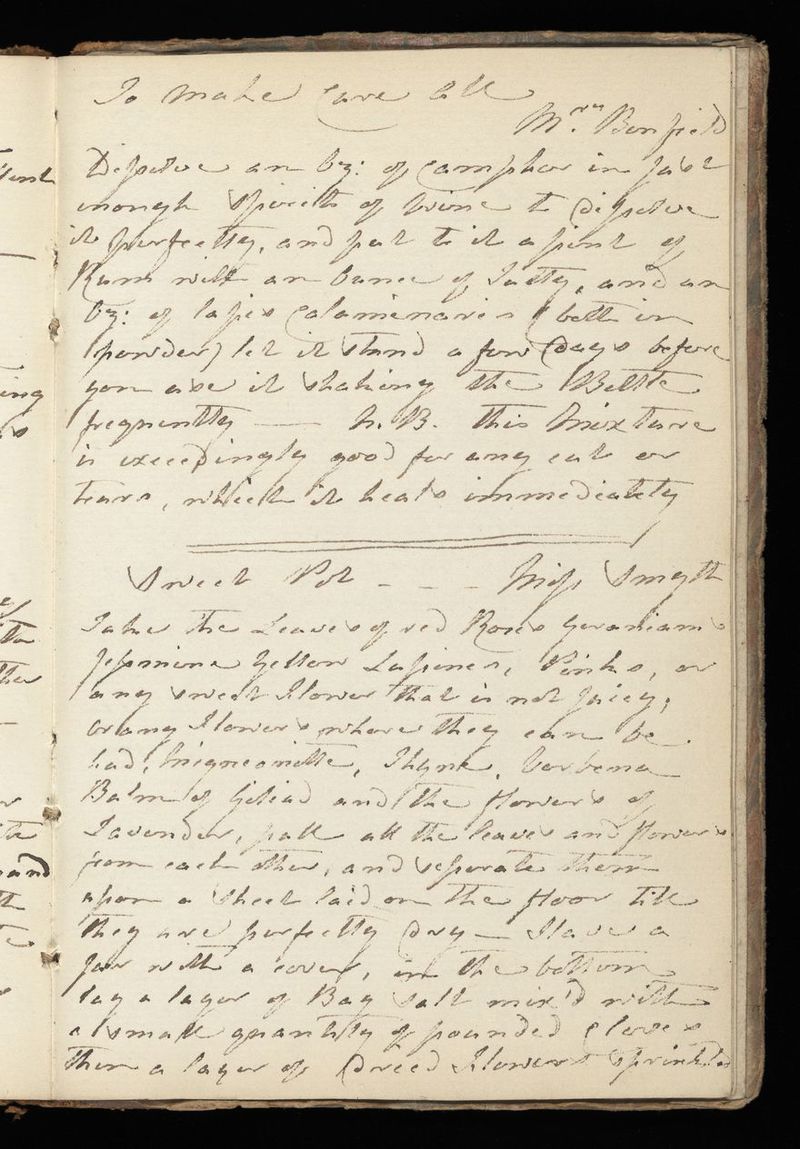 To make Cure All
Mrs. Benfield
Dissolve an Oz: of Camphor in just
enough Spirits of Wine to Dissolve
it perfectly, and put to it a pint of
Rum with an ounce of Tutty, and an
Oz: of lapis Calaminaris (both in
powder) let it stand a few Days before
you use it shaking the Bottle
frequently — N.B. this Mixture
is exceedingly good for any cut or
tears, which it heals immediately
Sweet Pot - - - Miss Smyth
Take the Leaves of red Roses Geraniams
Jessmine Yellow Lupines, Pinks, or
any sweet Flower that is not juicy,
orang Flowers where they can be
had, Migneonitte, Thyme, Verbena
Balm of Giliad and the flowers of
Lavender, pull all the leaves and flowers
from each other, and seperate them
upon a Sheet laid on the floor till
they are perfectly Dry — Have a
Jar with a cover, in the bottom
lay a layer of Bay Salt mix'd with
a small quantity of pounded Cloves
then a layer of Dreed Flowers sprinkled